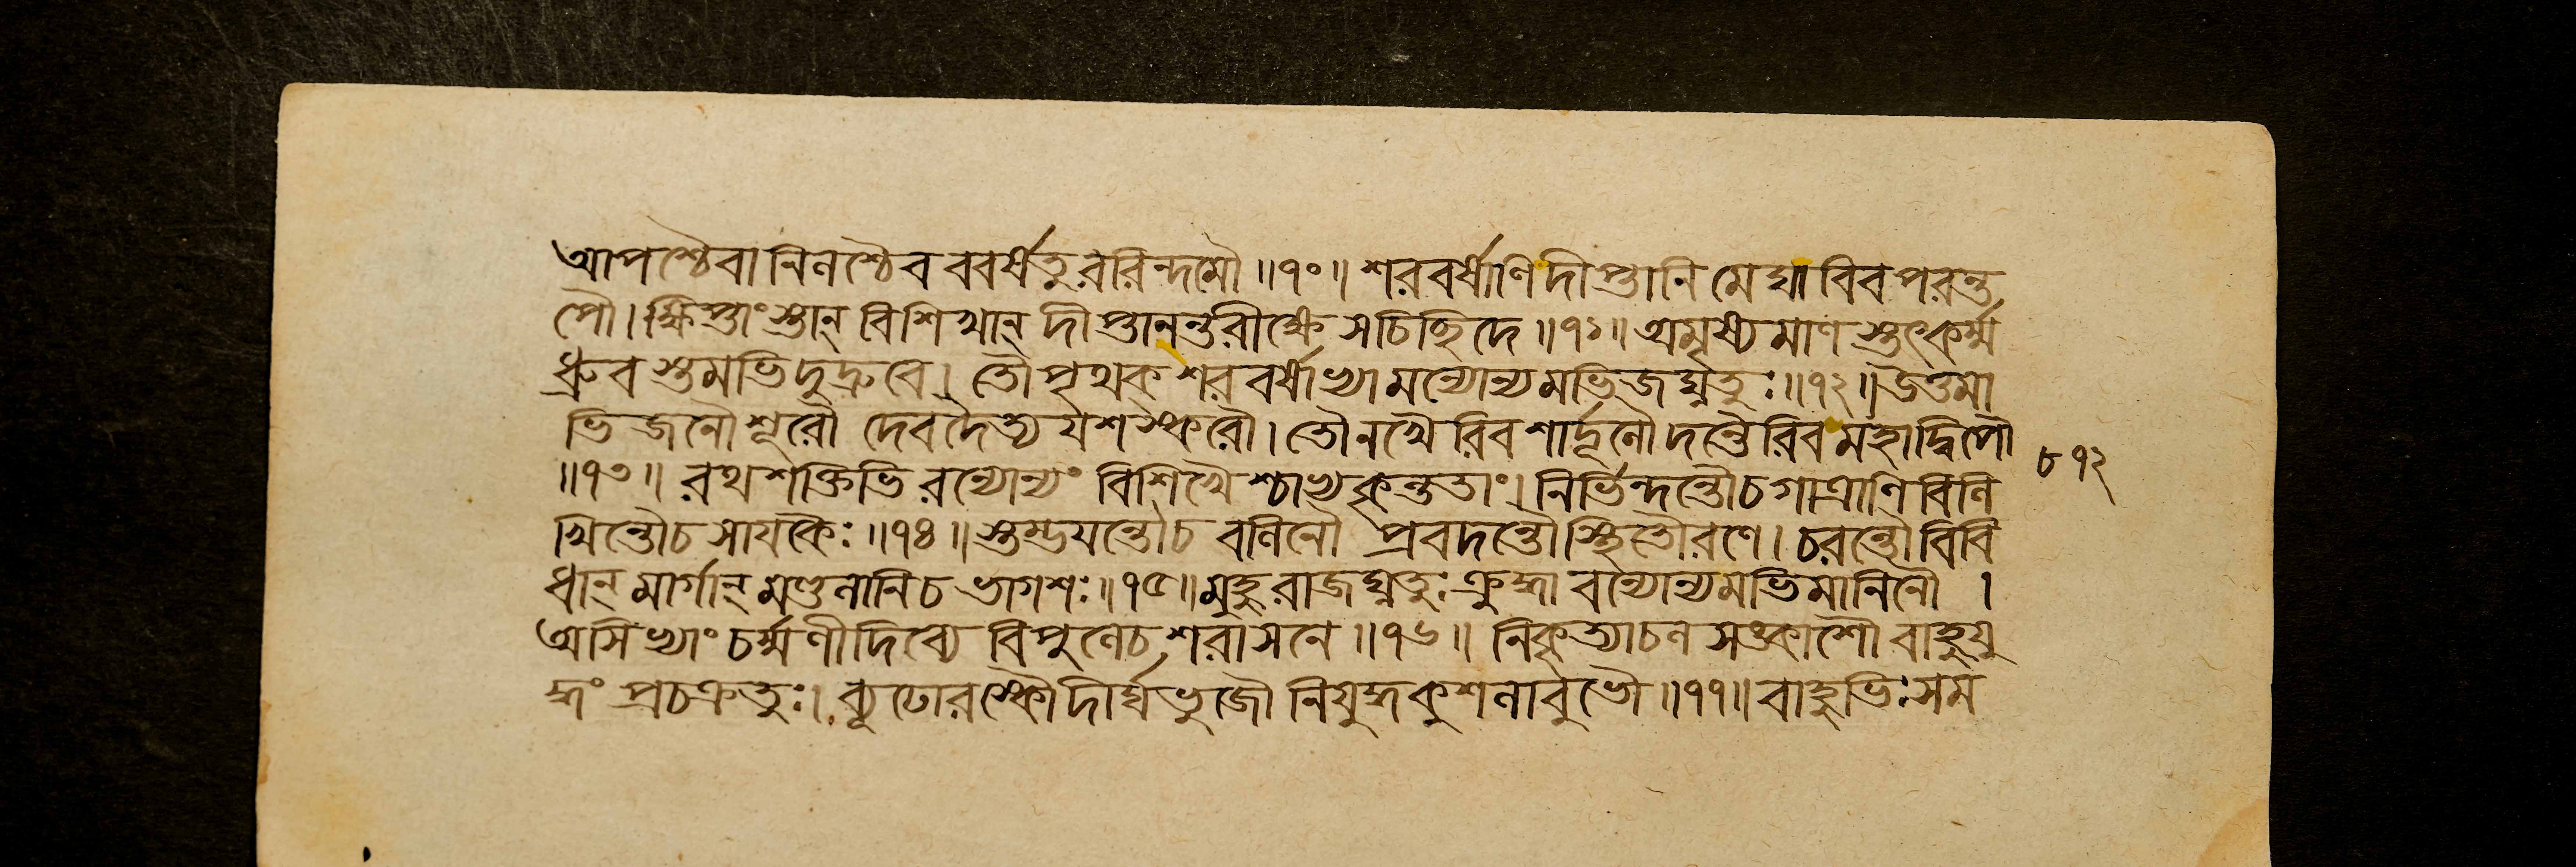 আপশ্চৈবানিনশ্চৈব ববর্ষতুররিন্দমৌ ॥৭০॥ শরবর্ষাণি দীপ্তানি মেঘাবিব পরন্ত
পৌ। ক্ষিপ্তাংস্তান্ বিশিখান্ দীপ্তানন্তরীক্ষে স চিচ্ছিদে ॥৭১॥ অমৃষ্যমাণস্তৎকর্ম্ম
ধ্রুবস্তমভিদুদ্রুবে। তৌ পৃথক্ শরবর্ষাভ্যামন্যোন্যমভিজঘ্নতুঃ ॥৭২॥ উত্তমা
ভিজনৌ শূরৌ দেবদৈত্যযশস্করৌ। তৌ নখৈরিব শার্দূলৌ দন্তৈরিব মহাদ্বিপৌ
॥৭৩॥ রথশক্তিভিরন্যোন্যং বিশিখৈশ্চাভ্যকৃন্ততাং। নির্ভিন্দন্তৌ চ গাত্রাণি বিনি
খিন্তৌ চ সাযকৈঃ ॥৭৪॥ স্তম্ভযন্তৌ চ বলিনৌ প্রবদন্তৌ স্থিতৌ রণে। চরন্তৌ বিবি
ধান্ মার্গান্ মণ্ডলানি চ ভাগশঃ ॥৭৫॥ মুহুরাজঘ্নতুঃ ক্রুদ্ধাবন্যোন্যমভিমানিনৌ ।
অসিভ্যাং চর্ম্মণী দিব্যে বিপুলে চ শরাসনে ॥৭৬॥ নিকৃত্যাচলসঙ্কাশৌ বাহুযু
দ্ধং প্রচক্রতুঃ। ব্যূঢোরস্কৌ দীর্ঘভুজৌ নিযুদ্ধকুশলাবুভৌ ॥৭৭॥ বাহুভিঃ সম
৮৭২